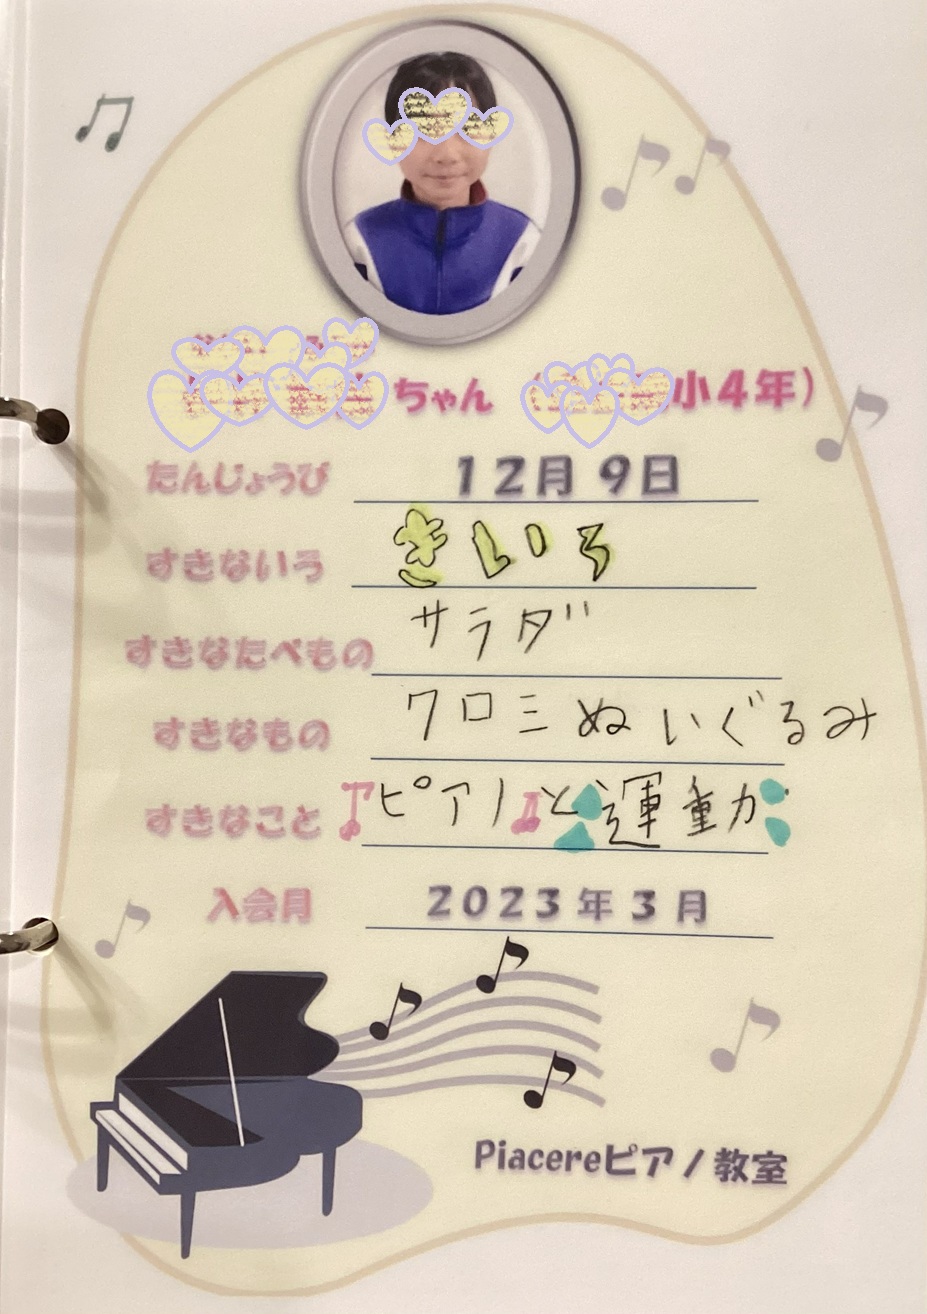 ちゃん 小4年)
たんじょうび 12月 9日
すきないろ きいろ
すきなたべもの サラダ
すきなもの クロミぬいぐるみ
すきなこと ピアノと運動か
入会月 2023年 3月
Piacereピアノ教室